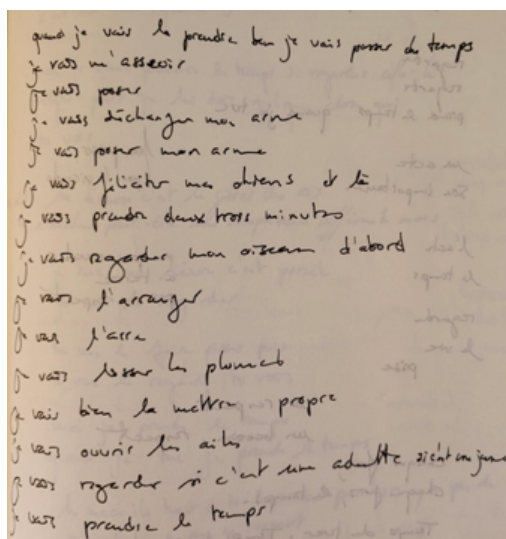 quand je vais la prendre ben je vais passer du temps
je vais m'asseoir
je vais poser
je vais décharger mon arme
je vais poser mon arme
je vais féliciter mes chiens et là
je vais prendre deux trois minutes
je vais regarder mon oiseau d'abord
je vais l'arranger
je vais l'arra
je vais lisser les plumes
je vais bien la mettre propre
je vais ouvrir les ailes
je vais regarder si c'est une adulte si c'est un jeune
je vais prendre le temps